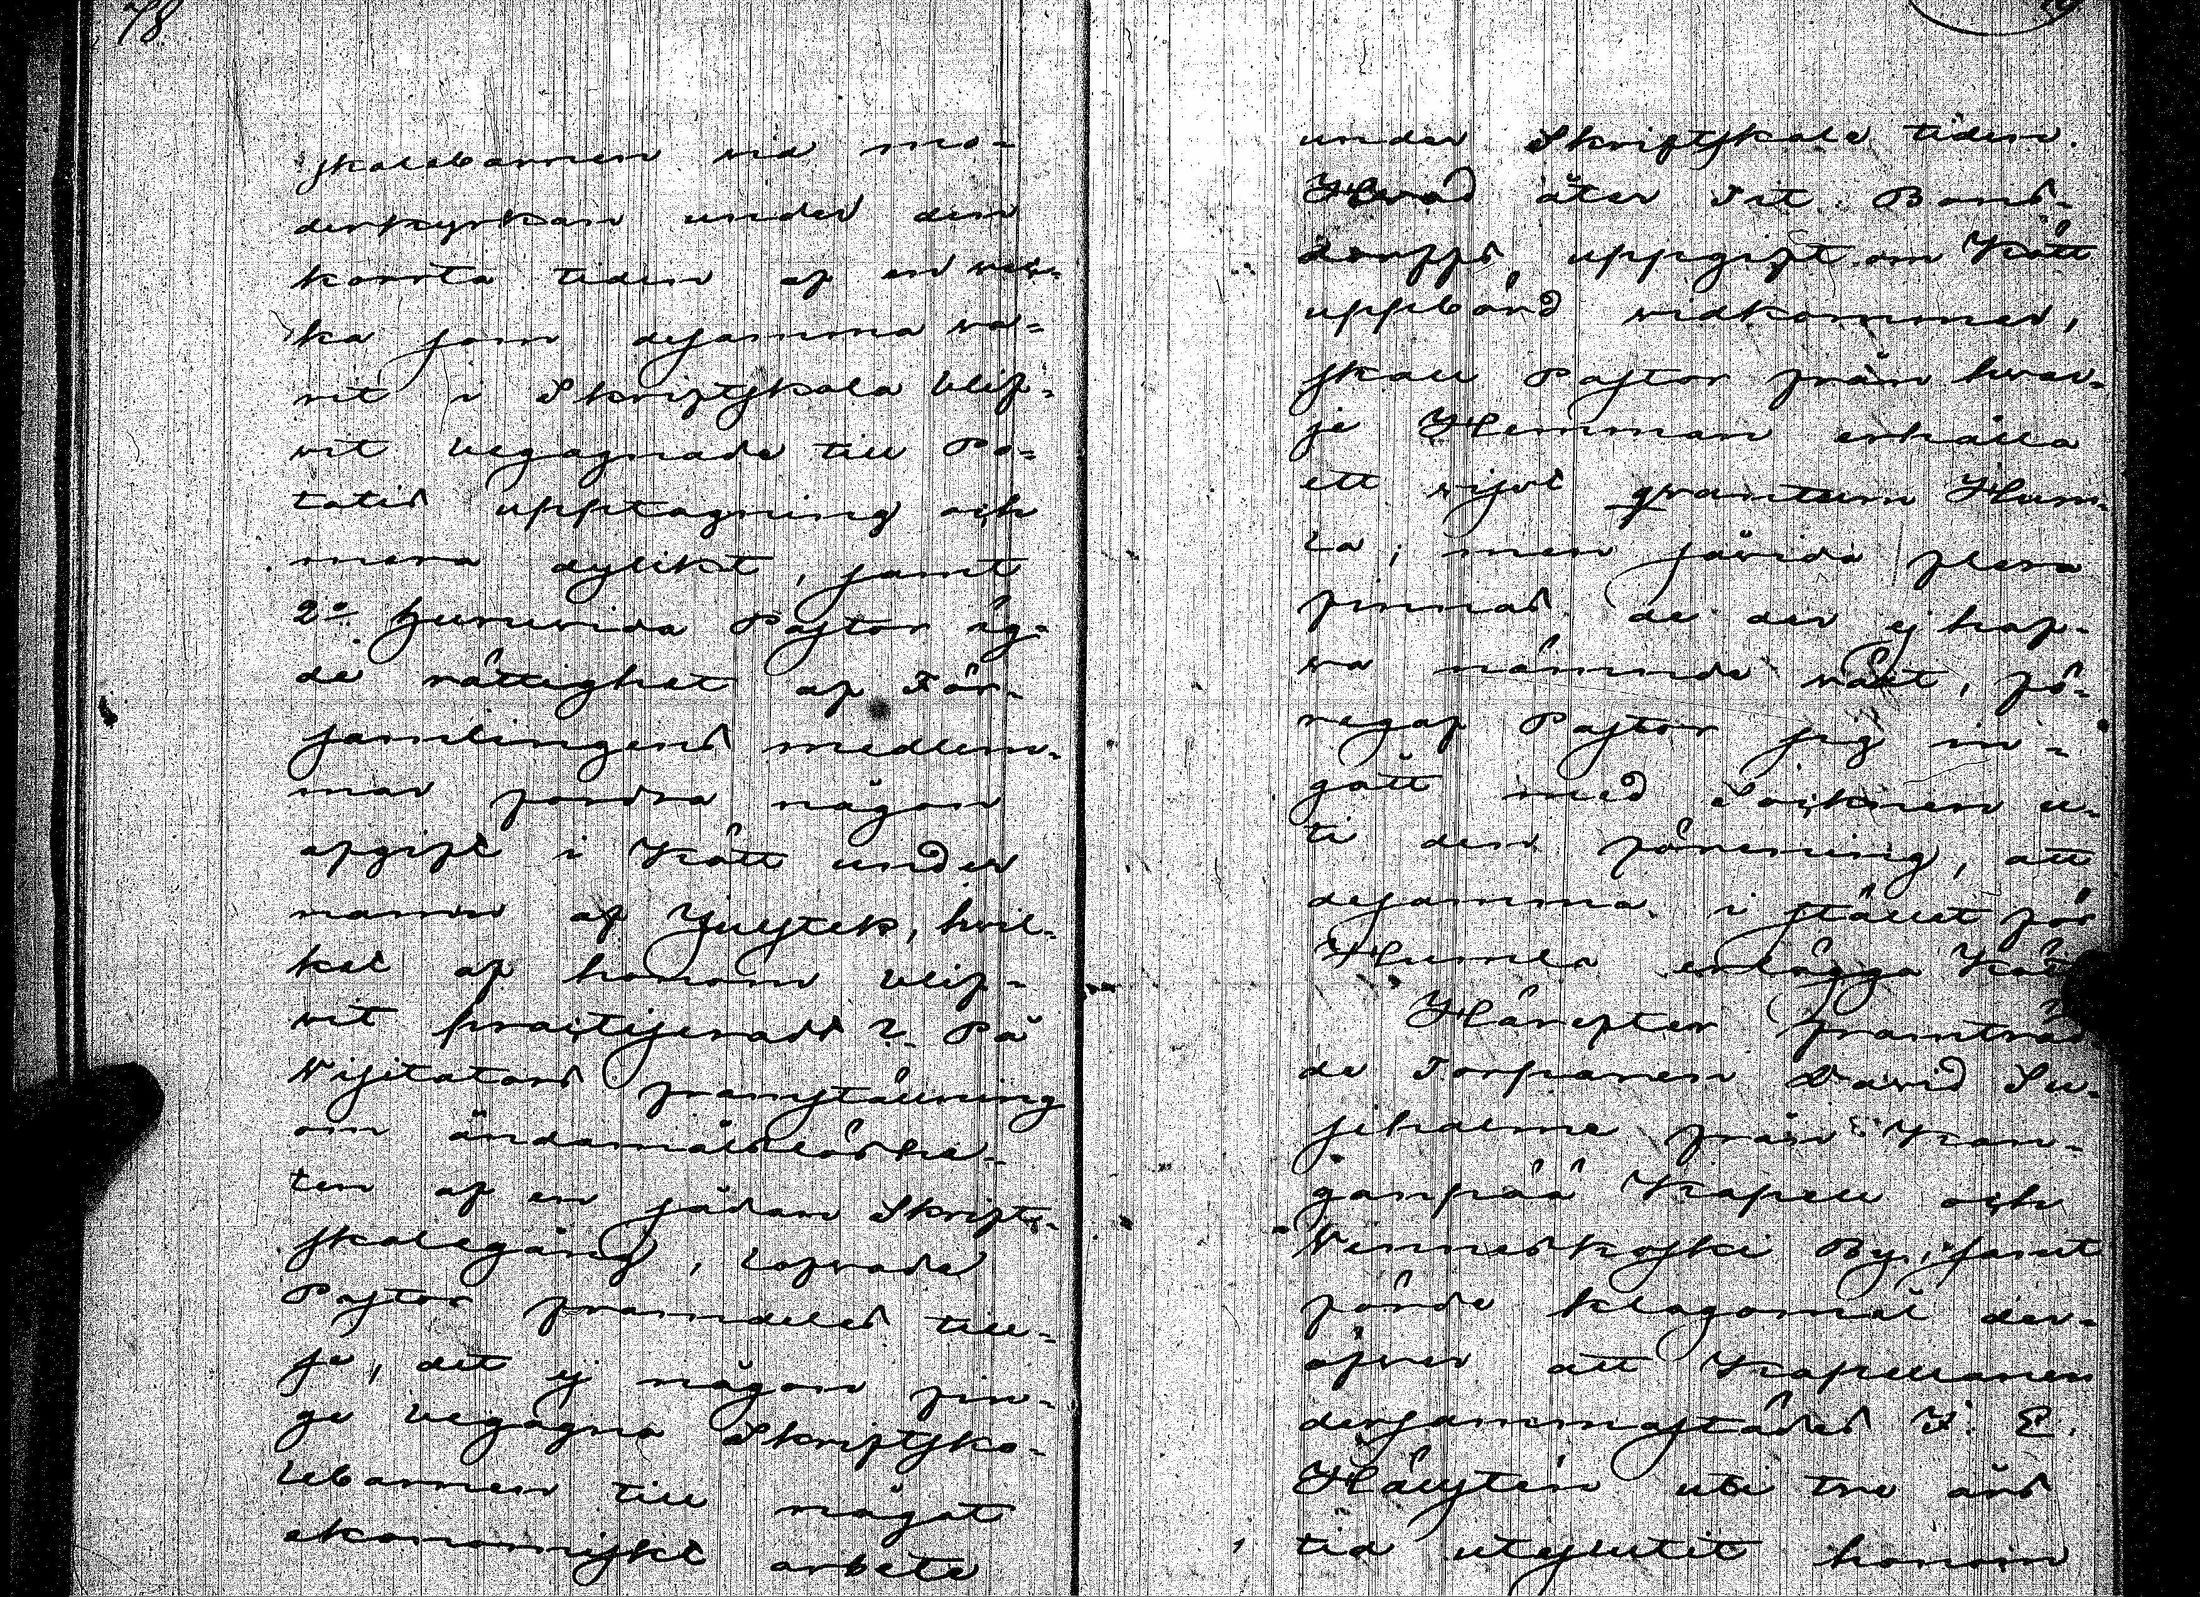 78
skolebarnen vid mo-
derkyrkan under den
korrta tiden af en vec-
ka som desamma va-
rit i Skriftskola blif-
vit begagnade till Po-
tatis upptagning och
mera dylikt, samt
2o huruvida Pastor äg-
de rättighet af För-
samlingens medlem-
mar fordra någon
afgift i Kött under
namn af Julstek, hvil-
ket af honom blif-
vit practiseradt? På
Visitators framställning
om ändamålslöshe-
ten af en sådan Skrift-
skolegång, lofvade
Pastor framdeles till-
se, det ej någon fin-
ge begagna Skriftsko-
lebarnen till något
ekonomiskt arbete
under Skriftskole tiden.
Hvad åter Tit. Bons-
dorffs uppgift om Kött
uppbörd vidkommer,
skall Pastor från hvar-
je Hemman erhålla
ett visst qvantum Hum-
la; men såvida flera
finnas de der ej haf-
va nämnde växt, fö-
regaf Pastor sig in-
gått med Socknen u-
ti den förening, att
desamma i stället för
Humla erlägga Kött
Härefter framträd
de Torparen David Su-
sihalme från Kan-
ganpää Kapell och
Vinneskoski By, samt
förde klagomål der-
öfver att Kapellanen
dersammastädes F. E.
Hällstén uti tre års
tid uteslutit honom